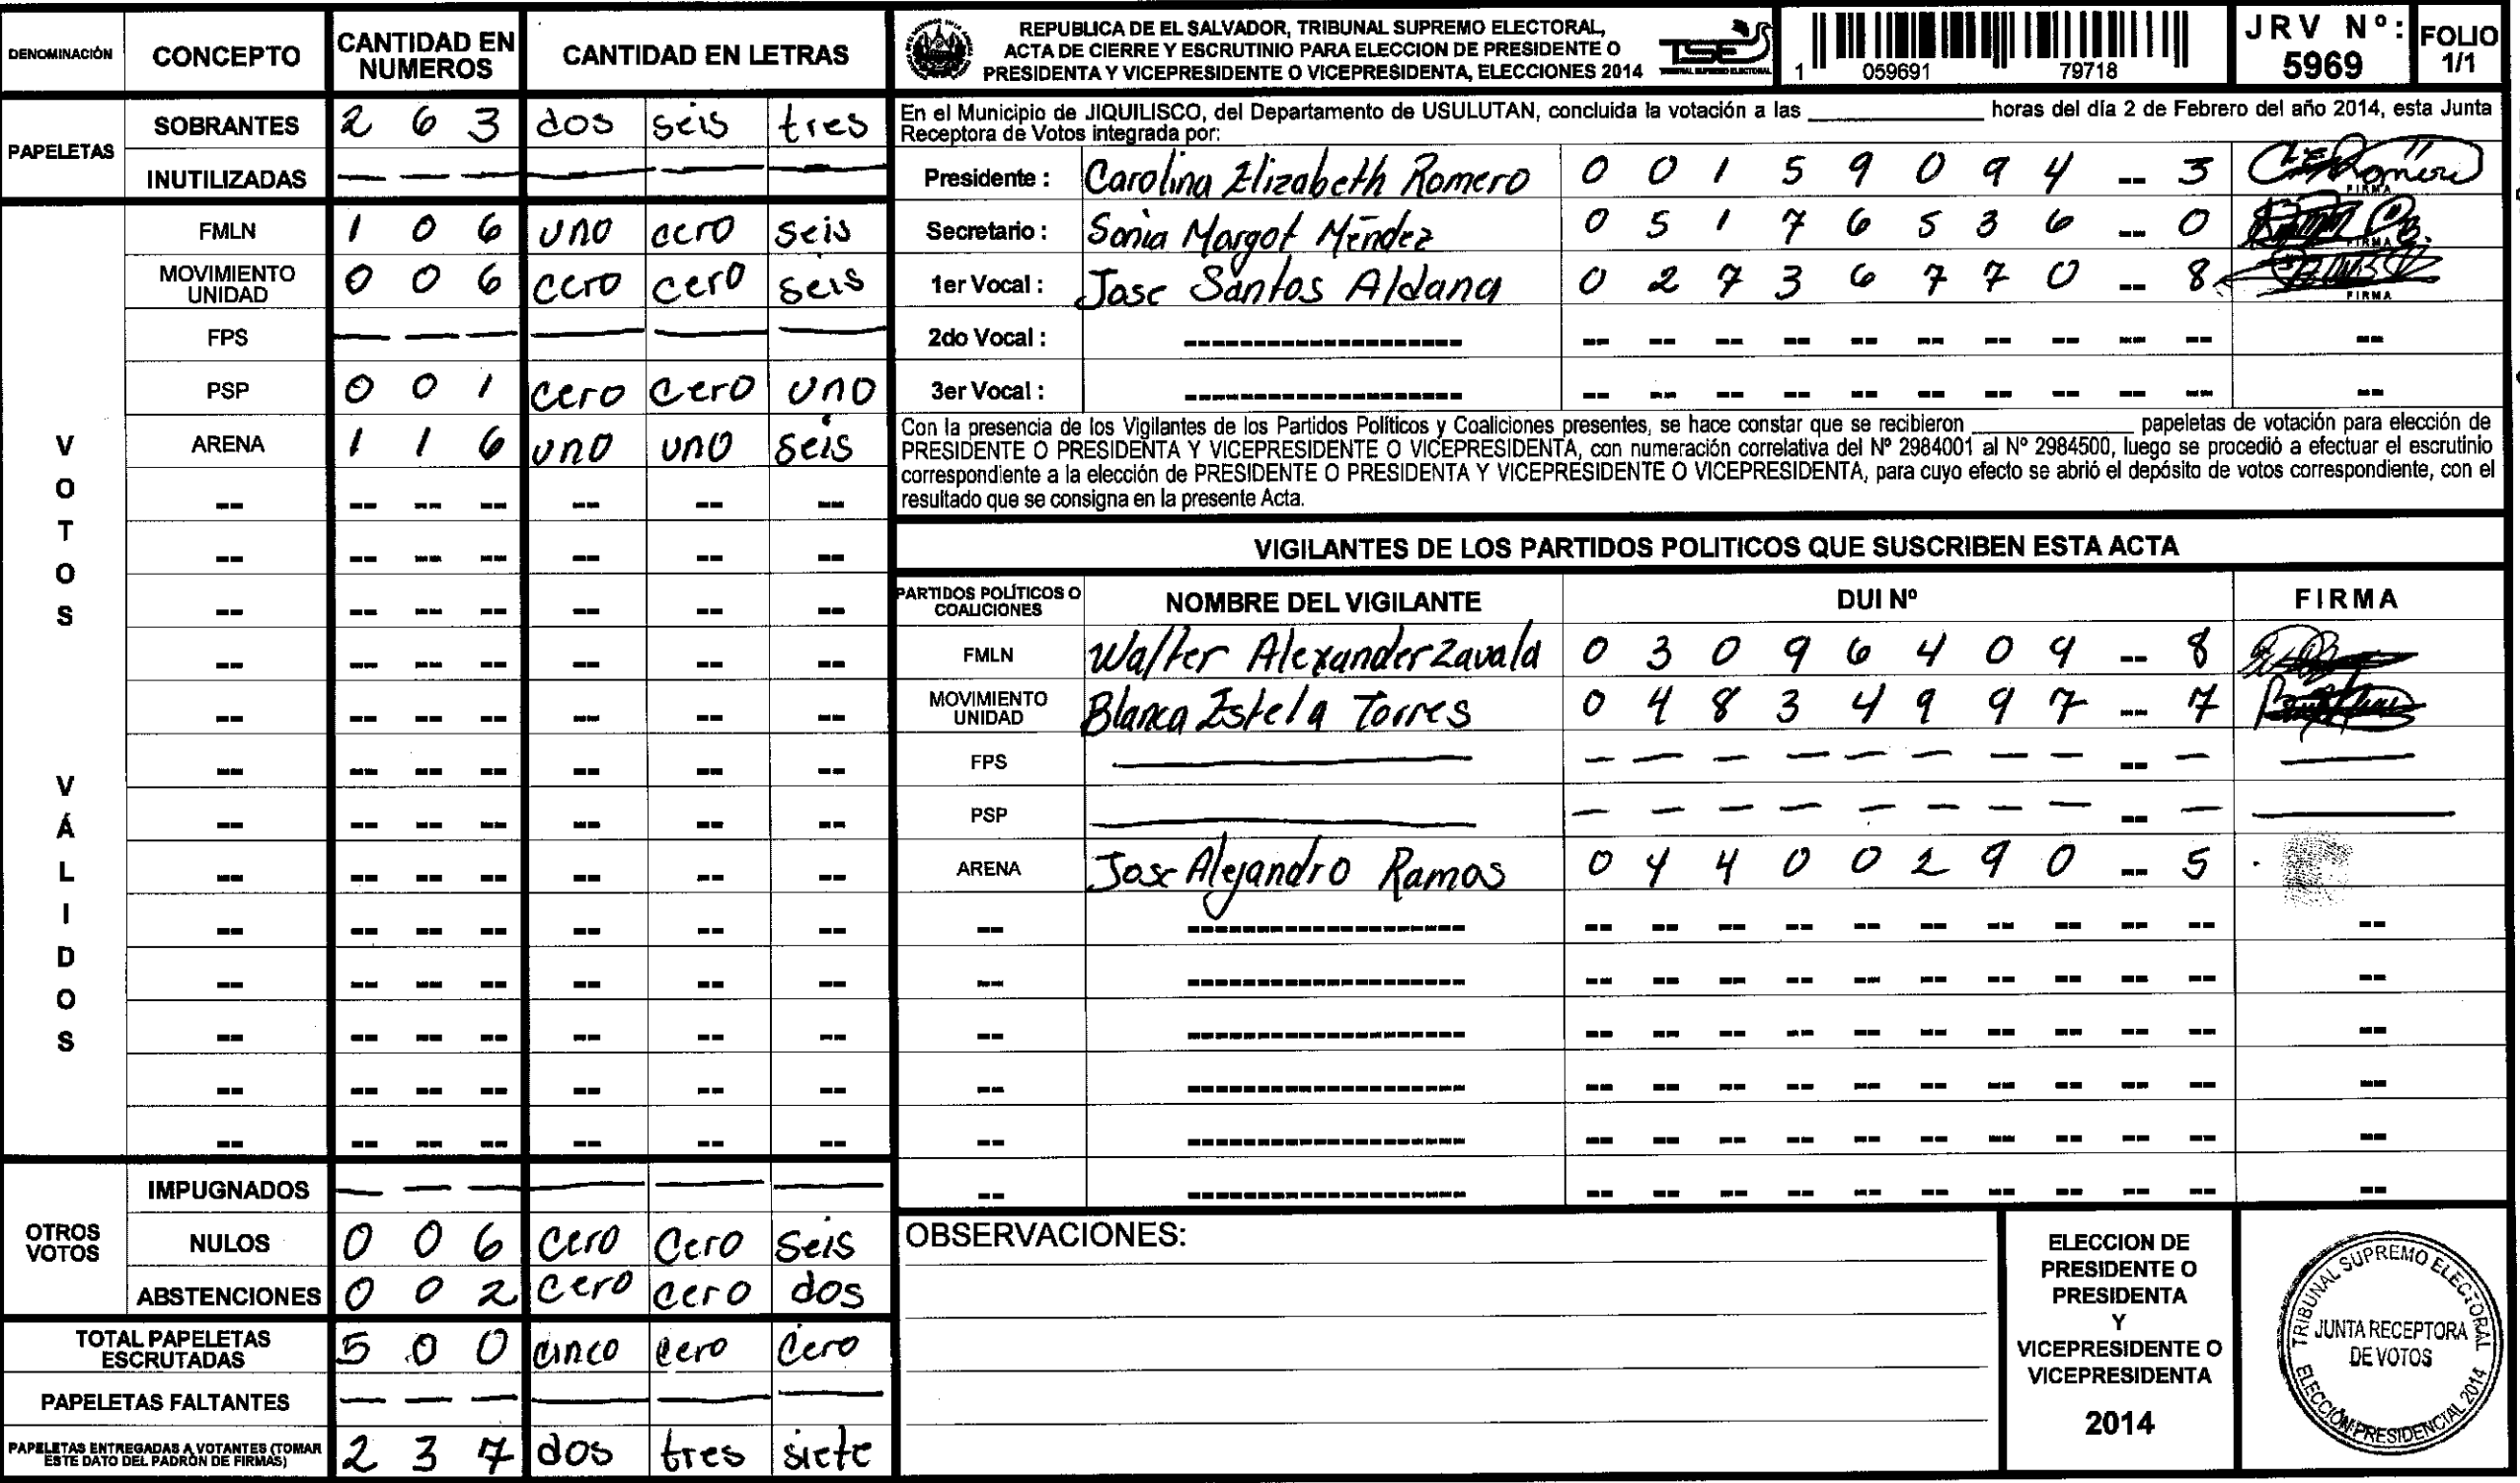 DENOMINACIÓN CONCEPTO CANTIDAD EN NUMEROS CANTIDAD EN LETRAS
PAPELETAS
SOBRANTES 2 6 3 dos seis tres
INUTILIZADAS — — — — — —
VOTOS VÁLIDOS
FMLN 1 0 6 uno cero seis
MOVIMIENTO UNIDAD 0 0 6 cero cero seis
FPS — — — — — —
PSP 0 0 1 cero cero uno
ARENA 1 1 6 uno uno seis
-- -- -- -- -- -- --
-- -- -- -- -- -- --
-- -- -- -- -- -- --
-- -- -- -- -- -- --
-- -- -- -- -- -- --
-- -- -- -- -- -- --
-- -- -- -- -- -- --
-- -- -- -- -- -- --
-- -- -- -- -- -- --
-- -- -- -- -- -- --
-- -- -- -- -- -- --
-- -- -- -- -- -- --
-- -- -- -- -- -- --
OTROS VOTOS
IMPUGNADOS — — — — — —
NULOS 0 0 6 cero cero seis
ABSTENCIONES 0 0 2 cero cero dos
TOTAL PAPELETAS ESCRUTADAS 5 0 0 cinco cero cero
PAPELETAS FALTANTES — — — — — —
PAPELETAS ENTREGADAS A VOTANTES (TOMAR ESTE DATO DEL PADRÓN DE FIRMAS) 2 3 7 dos tres siete
REPUBLICA DE EL SALVADOR, TRIBUNAL SUPREMO ELECTORAL,
ACTA DE CIERRE Y ESCRUTINIO PARA ELECCION DE PRESIDENTE O
PRESIDENTA Y VICEPRESIDENTE O VICEPRESIDENTA, ELECCIONES 2014
TSE
TRIBUNAL SUPREMO ELECTORAL
1 059691 79718
JRV Nº: 5969
FOLIO 1/1
En el Municipio de JIQUILISCO, del Departamento de USULUTAN, concluida la votación a las ____________ horas del día 2 de Febrero del año 2014, esta Junta
Receptora de Votos integrada por:
Presidente : Carolina Elizabeth Romero 0 0 1 5 9 0 9 4 -- 3 FIRMA
Secretario : Sonia Margot Méndez 0 5 1 7 6 5 3 6 -- 0 FIRMA
1er Vocal : Jose Santos Aldana 0 2 7 3 6 7 7 0 -- 8 FIRMA
2do Vocal : -------------------- -- -- -- -- -- -- -- -- -- -- --
3er Vocal : -------------------- -- -- -- -- -- -- -- -- -- -- --
Con la presencia de los Vigilantes de los Partidos Políticos y Coaliciones presentes, se hace constar que se recibieron ____________ papeletas de votación para elección de
PRESIDENTE O PRESIDENTA Y VICEPRESIDENTE O VICEPRESIDENTA, con numeración correlativa del Nº 2984001 al Nº 2984500, luego se procedió a efectuar el escrutinio
correspondiente a la elección de PRESIDENTE O PRESIDENTA Y VICEPRESIDENTE O VICEPRESIDENTA, para cuyo efecto se abrió el depósito de votos correspondiente, con el
resultado que se consigna en la presente Acta.
VIGILANTES DE LOS PARTIDOS POLITICOS QUE SUSCRIBEN ESTA ACTA
PARTIDOS POLÍTICOS O COALICIONES NOMBRE DEL VIGILANTE DUI Nº FIRMA
FMLN Walter Alexander Zavala 0 3 0 9 6 4 0 9 -- 8
MOVIMIENTO UNIDAD Blanca Estela Torres 0 4 8 3 4 9 9 7 -- 7
FPS — — — — — — — — — -- — —
PSP — — — — — — — — — -- — —
ARENA Jose Alejandro Ramos 0 4 4 0 0 2 9 0 -- 5
-- -------------------- -- -- -- -- -- -- -- -- -- -- --
-- -------------------- -- -- -- -- -- -- -- -- -- -- --
-- -------------------- -- -- -- -- -- -- -- -- -- -- --
-- -------------------- -- -- -- -- -- -- -- -- -- -- --
-- -------------------- -- -- -- -- -- -- -- -- -- -- --
-- -------------------- -- -- -- -- -- -- -- -- -- -- --
OBSERVACIONES:
ELECCION DE
PRESIDENTE O
PRESIDENTA
Y
VICEPRESIDENTE O
VICEPRESIDENTA
2014
TRIBUNAL SUPREMO ELECTORAL
JUNTA RECEPTORA
DE VOTOS
ELECCIÓN PRESIDENCIAL 2014